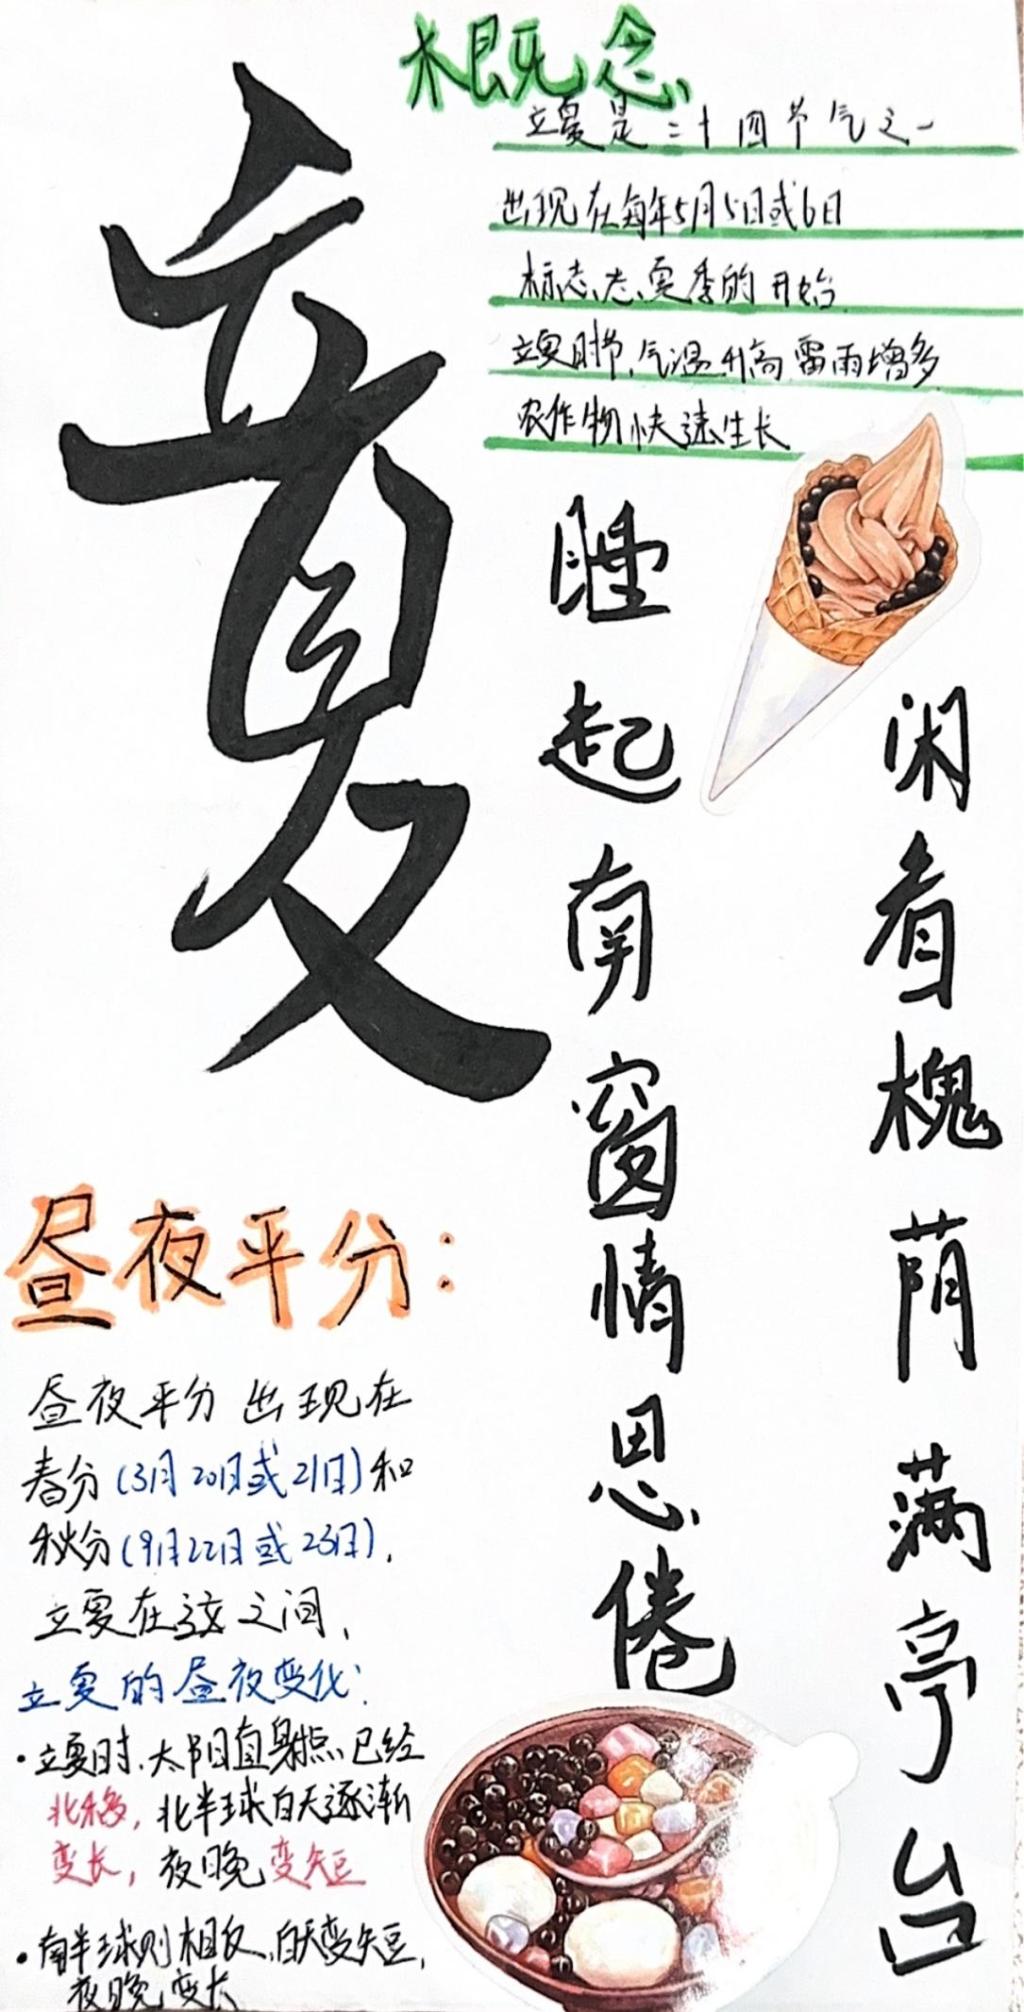 立夏
概念
立夏是二十四节气之一
出现在每年5月5日或6日
标志志夏季的开始
立夏时节,气温升高雷雨增多
农作物快速生长
睡起南窗情思倦
闲看槐荫满亭台
昼夜平分:
昼夜平分出现在
春分(3月20日或21日)和
秋分(9月22日或23日),
立夏在这之间,
立夏的昼夜变化:
·立夏时,太阳直射点已经
北移,北半球白天逐渐
变长,夜晚变短
·南半球则相反,白天变短,
夜晚变长